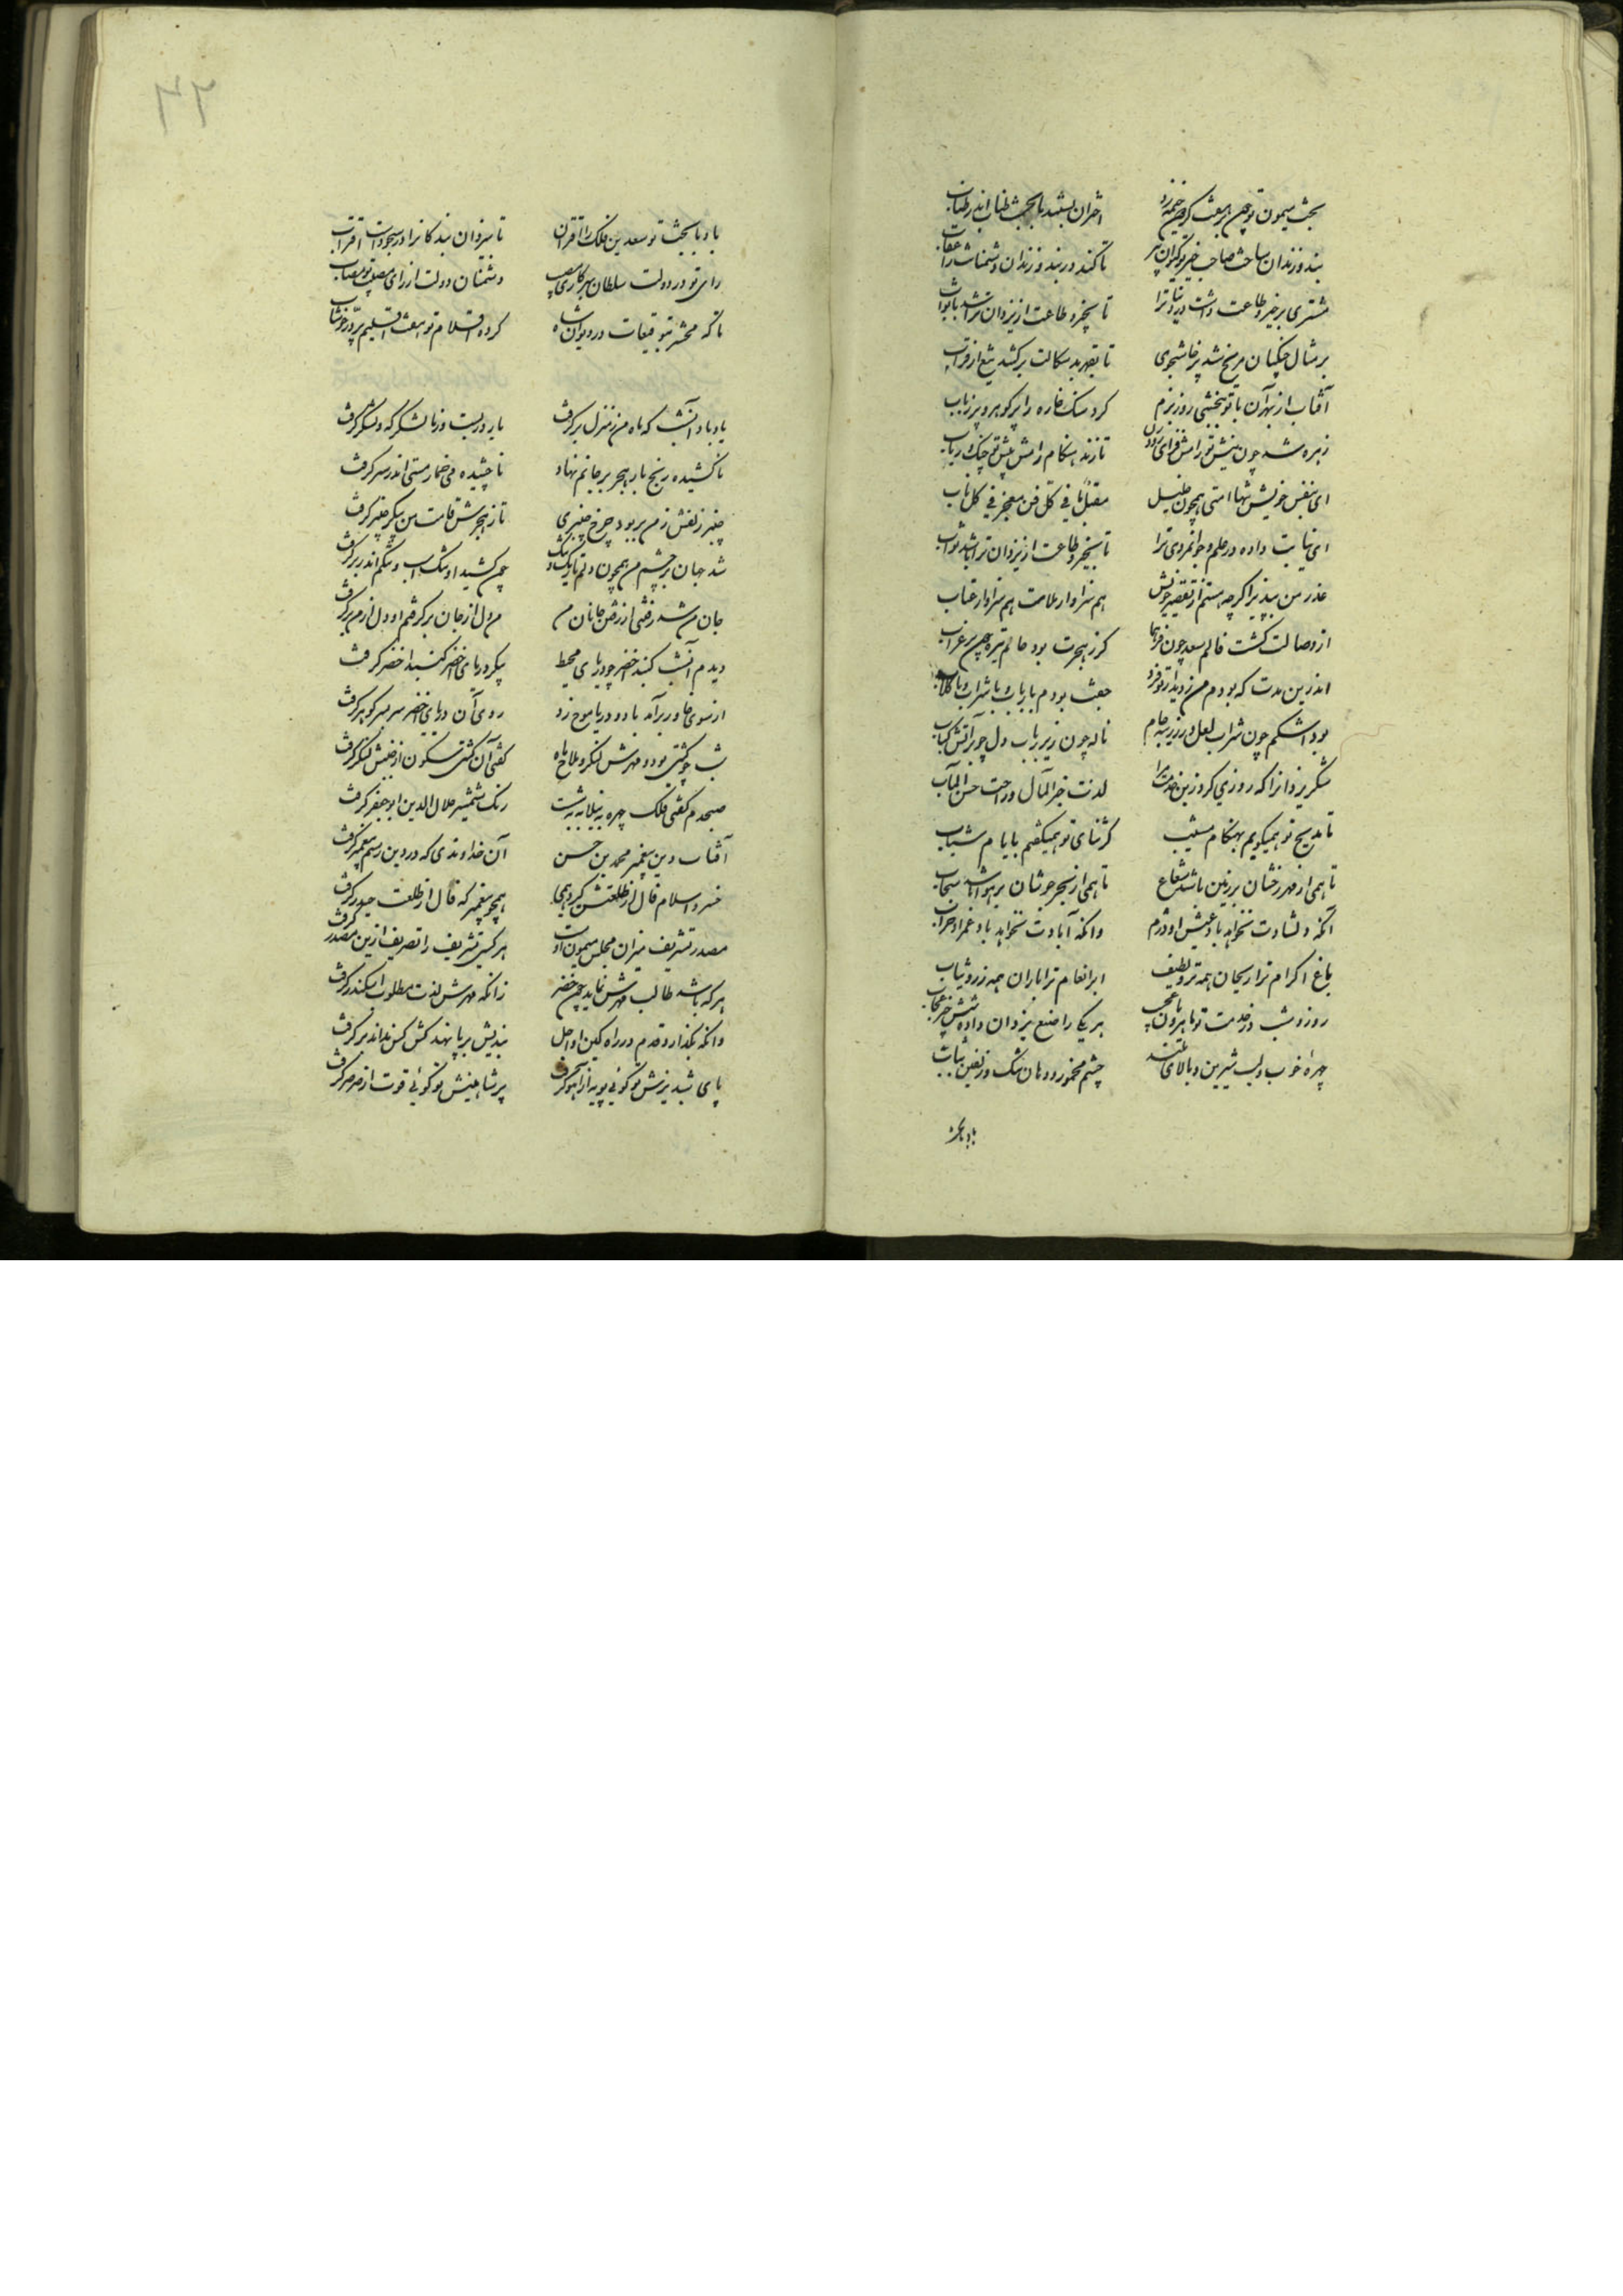 بخت میمون تو چون بر هفت گردون خیمه زد اختران بستند با بخت طناب اندر طناب
بند و زندان ساخت صاحب خبر تو کیوان پیر تا کند در بند و زندان دشمنانت را عقاب
مشتری بر خیر و طاعت داشت در دنیا ترا تا بخیر و طاعت از یزدان ترا باشد ثواب
بر مثال جنگیان مریخ شد پرخاشجوی تا بقهر بدسکالت برکشد تیغ از قراب
آفتاب از بهر آن تا تو ببخشی روز بزم کرد سنگ خاره را پر گوهر و پر زر ناب
زهره شد چون پیش تو رامش فزای تا زند هنگام رامش پیش تو چنگ و رباب
ای بنفس خویش تنها امتی همچون خلیل مقبل فی کل فن معجز فی کل باب
ای نهایت داده در علم و جوانمردی ترا تا بخیر و طاعت از یزدان ترا باشد ثواب
عذر من بپذیر اگر چه هستم از تقصیر خویش هم سزاوار ملامت هم سزاوار عتاب
از وصالت گشت فالم سعد چون فر هما کز هجرت بود حالم تیره چون پر غراب
اندرین مدت که بودم من ز دیدار تو فرد جفت بودم با رباب و با شراب و با کباب
بود اشکم چون شراب لعل در زرینه جام ناله چون زیر رباب و دل چو بر آتش کباب
شکر یزدانرا که روزی کرد زین خدمت مرا لذت خیر المآل و راحت حسن المآب
تا مدیح تو همیگویم بهنگام مشیب گر ثنای تو همیگفتم بایام شباب
تا همی از مهر رخشان بر زمین باشد شعاع تا همی از بحر جوشان بر هوا باشد سحاب
آنکه دلشادت نخواهد باد عیش او دژم وانکه آبادت نخواهد باد عمر او خراب
باغ اکرام ترا ریحان همه تر و لطیف ابر انعام ترا باران همه زر و ثیاب
روز و شب در خدمت تو ماهرویان هر یکی را صنع یزدان داده شش چیز عجاب
چهرهٔ خوب و لب شیرین و بالای بلند چشم مخمور و دهان تنگ و زلفین بتاب
باد با بخت
باد با بخت تو سعدین فلک را اقتران تا بیزدان بندگانرا در سجودست اقتراب
رای تو در دولت سلطان بهر کاری مصیب دشمنان دولت از رای مصیب تو مصاب
تا که محشر توقیعات در دیوان شاه کرده اقلام تو هفت اقلیم پر در خوشاب
یاد باد آنشب که ماه من ز منزل برگرفت بار در بست و ز ما لشکرگه و لشکر گرفت
ناکشیده رنج بار هجر بر جانم نهاد ناچشیده می خمار مستی اندر سر گرفت
چنبر زلفش ز من بربود چرخ چنبری تا ز هجرش قامت من پیکر چنبر گرفت
شد جهان بر چشم من همچون دلم تاریک و تنگ چون کشید او تنگ اسب و تنگم اندر بر گرفت
جان من شد رفتنی از رفتن جانان من من دل از جان برگرفتم او دل از من برگرفت
دیدم آنشب گنبد اخضر چو دریای محیط پیکر دریای اخضر گنبد اخضر گرفت
از سوی خاور برآمد باد و دریا موج زد روی آن دریای اخضر سر بسر گوهر گرفت
شب چو کشتی بود و مهرش لنگر و ملاح ماه گفتی آن کشتی سکون از جنبش لنگر گرفت
صبحدم گفتی فلک چهره به نیلابه بشست رنگ شمشیر جلال الدین ابو جعفر گرفت
آفتاب دین پیغمبر محمد بن حسن آن خداوندی که در دین رسم پیغمبر گرفت
خسرو اسلام فال از طلعتش گیرد همی همچو پیغمبر که فال از طلعت حیدر گرفت
مصدر تشریف میران مجلس میمون اوست هر کسی تشریف را تصریف ازین مصدر گرفت
هرکه باشد طالب مهرش نماید چون خضر زانکه مهرش لذت مطلوب اسکندر گرفت
وانکه بگذارد قدم در راه کین او اجل بندیش بر پا نهد کش کس نداند برگرفت
پای شبدیزش تو گوئی پویه از آهو گرفت پر شاهینش تو گوئی قوت از صرصر گرفت